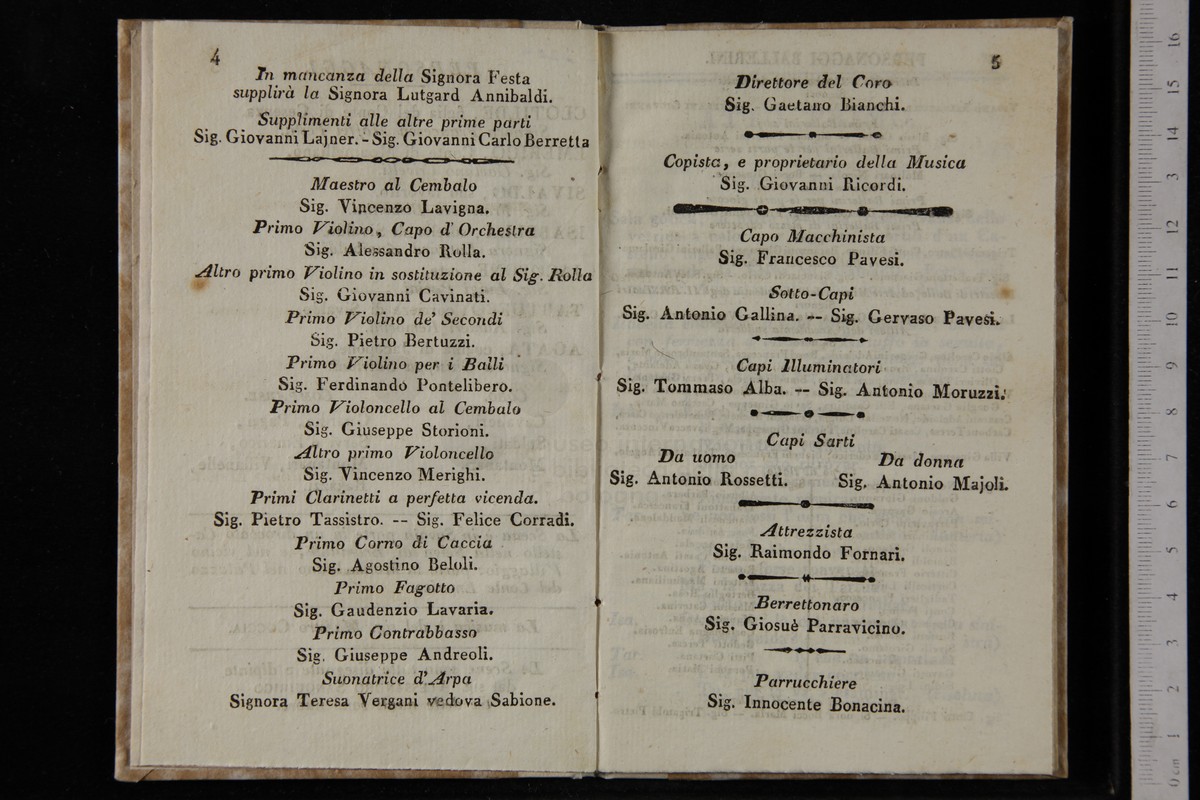 4
In mancanza della Signora Festa
supplirà la Signora Lutgard Annibaldi.
Supplimenti alle altre prime parti
Sig. Giovanni Lajner. - Sig. Giovanni Carlo Berretta
Maestro al Cembalo
Sig. Vincenzo Lavigna.
Primo Violino, Capo d'Orchestra
Sig. Alessandro Rolla.
Altro primo Violino in sostituzione al Sig. Rolla
Sig. Giovanni Cavinati.
Primo Violino de' Secondi
Sig. Pietro Bertuzzi.
Primo Violino per i Balli
Sig. Ferdinando Pontelibero.
Primo Violoncello al Cembalo
Sig. Giuseppe Storioni.
Altro primo Violoncello
Sig. Vincenzo Merighi.
Primi Clarinetti a perfetta vicenda.
Sig. Pietro Tassistro. -- Sig. Felice Corradi.
Primo Corno di Caccia
Sig. Agostino Beloli.
Primo Fagotto
Sig. Gaudenzio Lavaria.
Primo Contrabbasso
Sig. Giuseppe Andreoli.
Suonatrice d'Arpa
Signora Teresa Vergani vedova Sabione.
5
Direttore del Coro
Sig. Gaetano Bianchi.
Copista, e proprietario della Musica
Sig. Giovanni Ricordi.
Capo Macchinista
Sig. Francesco Pavesi.
Sotto-Capi
Sig. Antonio Gallina. -- Sig. Gervaso Pavesi.
Capi Illuminatori
Sig. Tommaso Alba. -- Sig. Antonio Moruzzi.
Capi Sarti
Da uomo Da donna
Sig. Antonio Rossetti. Sig. Antonio Majoli.
Attrezzista
Sig. Raimondo Fornari.
Berrettonaro
Sig. Giosuè Parravicino.
Parrucchiere
Sig. Innocente Bonacina.
0 cm 1 2 3 4 5 6 7 8 9 10 11 12 13 14 15 16